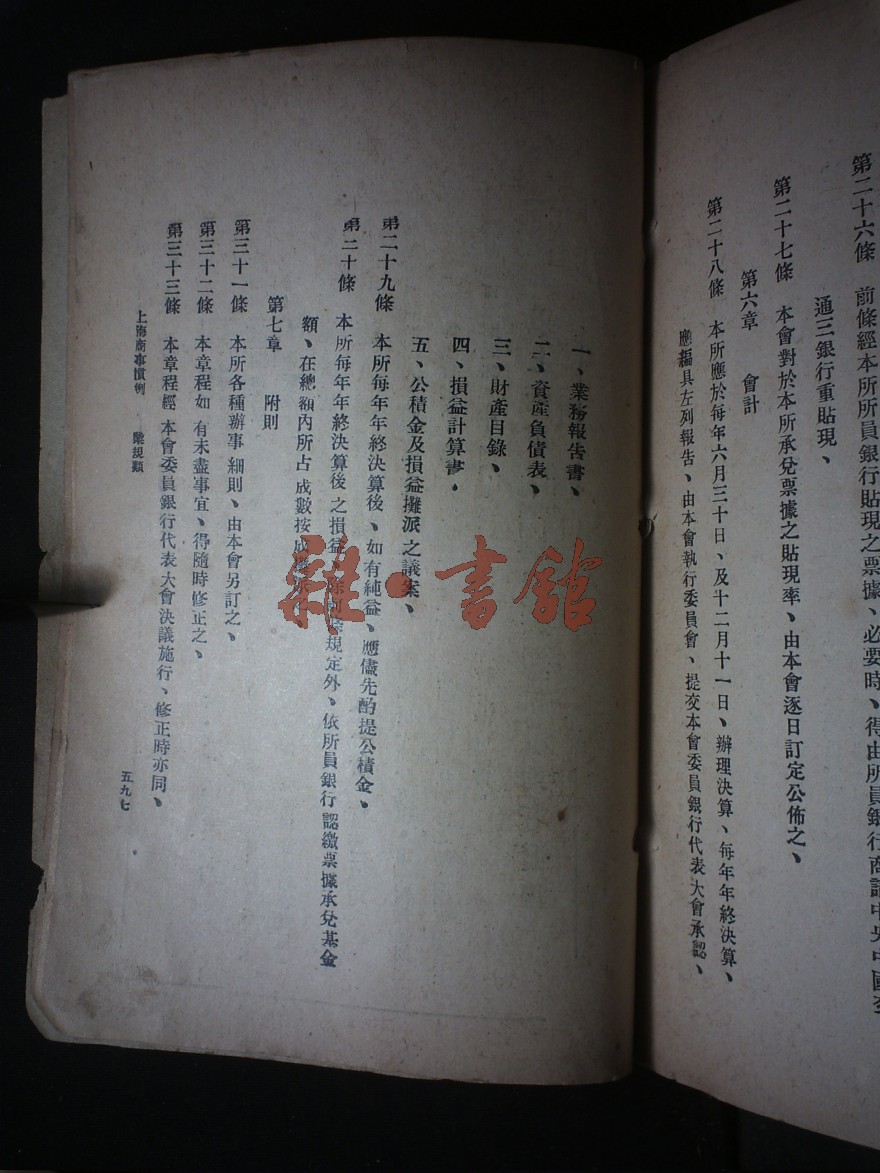 第二十六條　前條經本所所員銀行貼現之票據、必要時、得由所員銀行商請中央中國交
通三銀行重貼現、
第二十七條　本會對於本所承兌票據之貼現率、由本會逐日訂定公佈之、
第六章　會計
第二十八條　本所應於每年六月三十日、及十二月十一日、辦理決算、每年年終決算、
應編具左列報告、由本會執行委員會、提交本會委員銀行代表大會承認、
一、業務報告書、
二、資產負債表、
三、財產目錄、
四、損益計算書．
五、公積金及損益攤派之議案、
第二十九條　本所每年年終決算後、如有純益、應儘先酌提公積金、
第二十條　本所每年年終決算後之損益、除前條規定外、依所員銀行認繳票據承兌基金
額、在總額內所占成數按成
第七章　附則
第三十一條　本所各種辦事細則、由本會另訂之、
第三十二條　本章程如有未盡事宜、得隨時修正之、
第三十三條　本章程經本會委員銀行代表大會決議施行、修正時亦同、
上海商事慣例　業規類
五九七
雜·書館